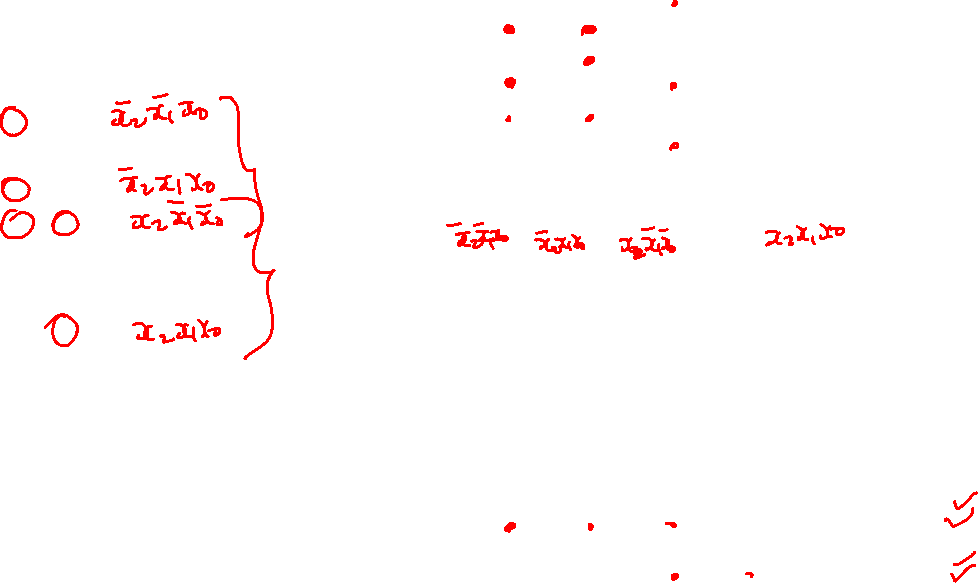 x̄₂x̄₁x̄₀
x̄₂x₁x₀
x₂x̄₁x̄₀
x₂x₁x₀
x̄₂x̄₁x₀ x̄₂x₁x₀ x₂x̄₁x̄₀ x₂x₁x₀